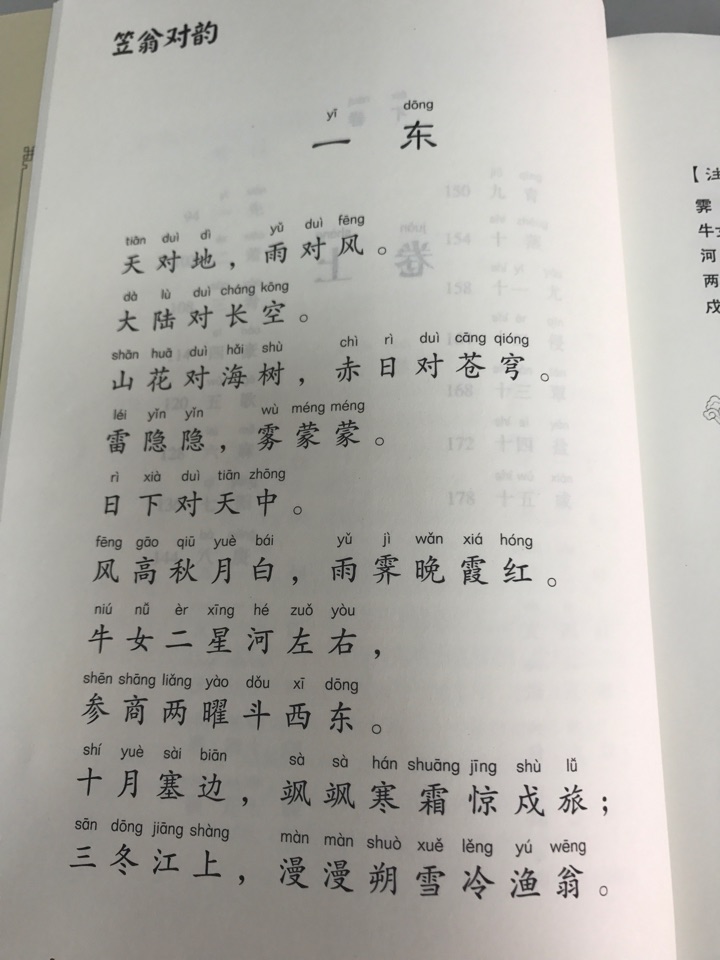 笠翁对韵
yī dōng
一 东
tiān duì dì yǔ duì fēng
天对地，雨对风。
dà lù duì cháng kōng
大陆对长空。
shān huā duì hǎi shù chì rì duì cāng qióng
山花对海树，赤日对苍穹。
léi yǐn yǐn wù méng méng
雷隐隐，雾蒙蒙。
rì xià duì tiān zhōng
日下对天中。
fēng gāo qiū yuè bái yǔ jì wǎn xiá hóng
风高秋月白，雨霁晚霞红。
niú nǚ èr xīng hé zuǒ yòu
牛女二星河左右，
shēn shāng liǎng yào dǒu xī dōng
参商两曜斗西东。
shí yuè sài biān sà sà hán shuāng jīng shù lǚ
十月塞边，飒飒寒霜惊戍旅；
sān dōng jiāng shàng màn màn shuò xuě lěng yú wēng
三冬江上，漫漫朔雪冷渔翁。
【注
霁
牛女
河
两
戍